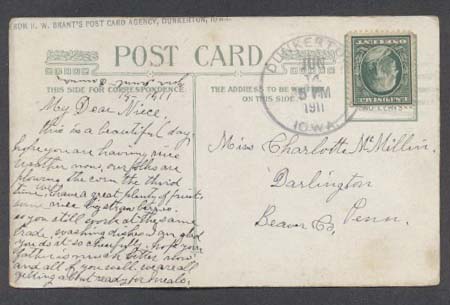 H. W. BRANT'S POST CARD AGENCY, DUNKERTON, IOWA.
POST CARD
THIS SIDE FOR CORRESPONDENCE
THE ADDRESS TO BE
ON THIS SIDE
DUNKERTON
JUN
14
5 PM
1911
IOWA
My Dear Niece.
this is a beautiful day
hope you are having nice
weather now, our folks are
plowing the corn the third
time. will have a great plenty of fruit
some nice big strawberries.
so you still work at the same
trade. washing dishes I am glad
you do it so cheerfully. hope your
father is much better now
and all of you well. we are all
getting about ready for meals.
Miss Charlotte McMillin
Darlington
Beaver Co, Penn.